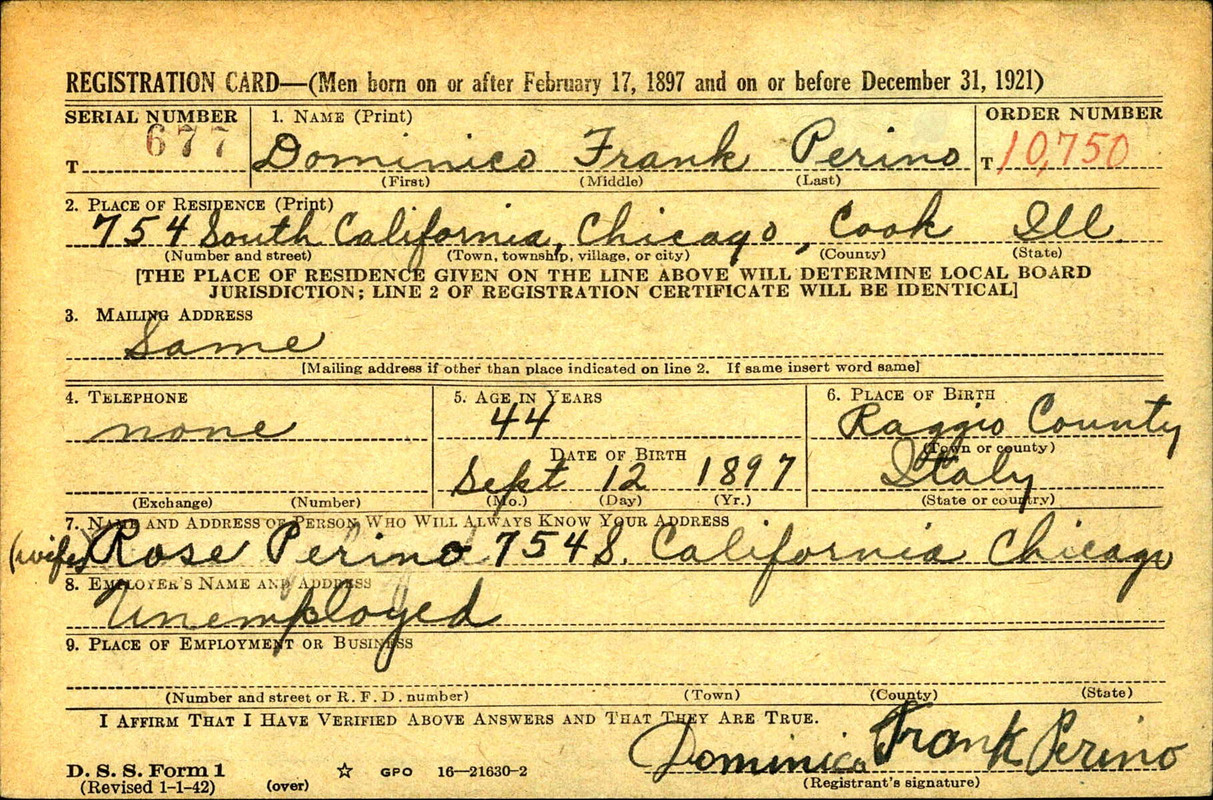 REGISTRATION CARD—(Men born on or after February 17, 1897 and on or before December 31, 1921)
SERIAL NUMBER 1. NAME (Print) ORDER NUMBER
T 677 Dominico Frank Perino T 10,750
(First) (Middle) (Last)
2. PLACE OF RESIDENCE (Print)
754 South California, Chicago, Cook Ill.
(Number and street) (Town, township, village, or city) (County) (State)
[THE PLACE OF RESIDENCE GIVEN ON THE LINE ABOVE WILL DETERMINE LOCAL BOARD
JURISDICTION; LINE 2 OF REGISTRATION CERTIFICATE WILL BE IDENTICAL]
3. MAILING ADDRESS
Same
[Mailing address if other than place indicated on line 2. If same insert word same]
4. TELEPHONE 5. AGE IN YEARS 6. PLACE OF BIRTH
none 44 Raggio County
DATE OF BIRTH (Town or county)
Sept 12 1897 Italy
(Exchange) (Number) (Mo.) (Day) (Yr.) (State or country)
7. NAME AND ADDRESS OF PERSON WHO WILL ALWAYS KNOW YOUR ADDRESS
(wife) Rose Perino 754 S. California Chicago
8. EMPLOYER'S NAME AND ADDRESS
Unemployed
9. PLACE OF EMPLOYMENT OR BUSINESS
(Number and street or R. F. D. number) (Town) (County) (State)
I AFFIRM THAT I HAVE VERIFIED ABOVE ANSWERS AND THAT THEY ARE TRUE.
Dominico Frank Perino
D. S. S. Form 1 ☆ GPO 16—21630-2
(Revised 1-1-42) (over) (Registrant's signature)